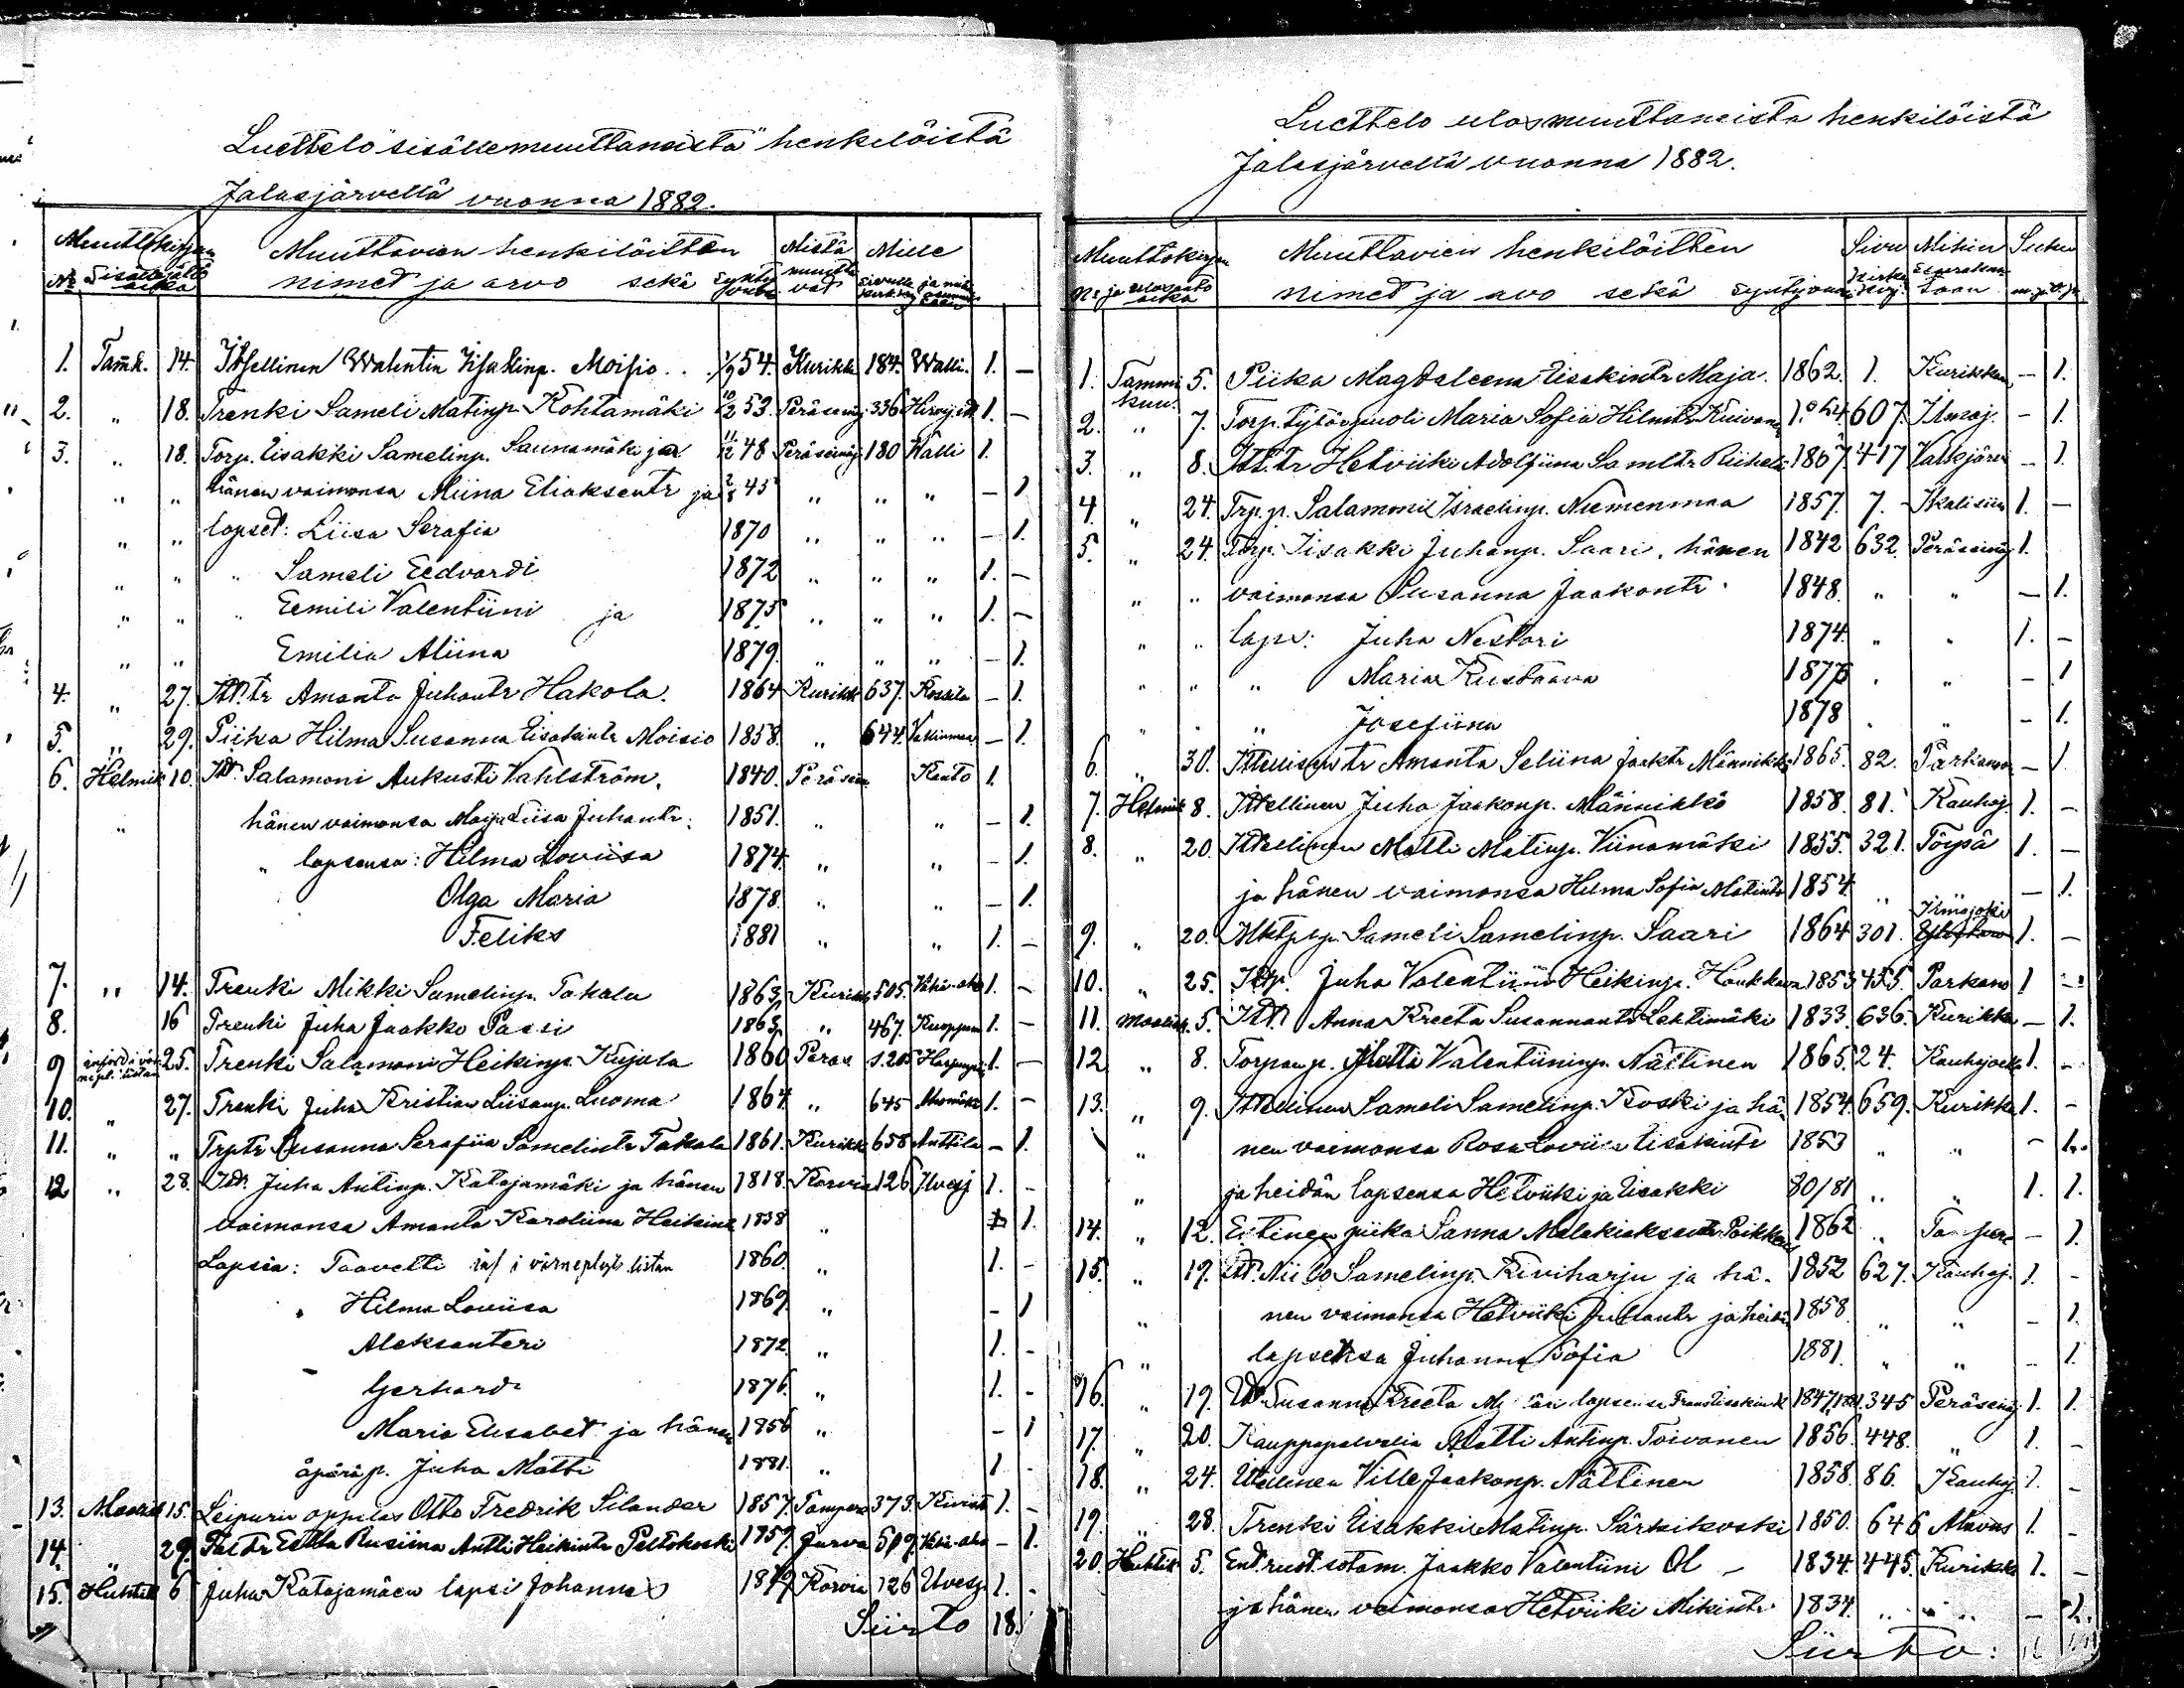 Luettelo sisällemuuttaneista henkilöistä
Jalasjärveltä vuonna 1882.
Muuttokirjan Muuttavien henkilöitten Mistä Mille
№ Sisältäjättö aika nimet ja arvo sekä synty vuosi muutta vat sivulle ja mihin
1. Tamk. 14. Itsellinen Walentin Iisakinp. Moisio . . 1/9 54. Kurikk. 184. Walli. 1. —
2. „ 18. Trenki Sameli Matinp. Kohtamäki 10/2 53. Peräseinj. 336 1. —
3. „ 18. Torp. Eisakki Samelinp. Saunamäki ja 11/12 48 Peräseinäj. 180 Walli 1.
„ „ hänen vaimonsa Miina Eliaksentr ja 2/8 45 „ „ „ — 1
„ „ lapset: Liisa Serafia 1870 „ „ „ — 1.
„ „ „ Sameli Eedvardi 1872 „ „ „ 1. —
„ „ „ Eemili Valentiini ja 1875 „ „ „ 1. —
„ „ Emilia Aliina 1879. „ „ „ — 1.
4. „ 27. Itt.tr Amanta Juhontr Hakola. 1864 Kurikk 637. Koskela — 1.
5. „ 29. Piika Hilma Susanna Eisakintr Moisio 1858. „ 644. — 1.
6. Helmik 10. Itt. Salamoni Aukusti Vahlström. 1840. Peräsein Kento 1.
„ hänen vaimonsa Maija Liisa Juhantr. 1851. „ „ — 1.
„ lapsensa: Hilma Loviisa 1874. „ „ — 1.
Olga Maria 1878. „ „ — 1.
Feliks 1881 „ „ 1. —
7. „ 14. Trenki Mikki Samelinp. Takala 1863 Kurikk 505. 1. —
8. 16 Trenki Juha Jaakko Passi 1863 „ 467. 1. —
9 25. Trenki Salamoni Heikinp. Kujala 1860 Peräs 1. —
10. „ 27. Trenki Juha Kristian Liisanp. Luoma 1864 „ 645 1. —
11. „ „ Trptr Susanna Serafiia Samelintr Takala 1861. Kurikk 658 Anttila — 1.
12 „ 28. Itt. Juha Antinp. Katajamäki ja hänen 1818. Karvia 126 Ilvesj 1. -
vaimonsa Amanta Karoliina Heikint 1838 „ 1.
Lapsia: Taavetti inf i värnepligts listan 1860. „ 1. -
„ Hilma Loviisa 1869. „ - 1
Aleksanteri 1872. „ 1. -
Gerhard 1876. „ 1. -
Maria Elisabet ja hänen 1856 „ - 1
äpäräp. Juha Matti 1881. „ 1 -
13. Maalisk 15. Leipurin oppilas Otto Fredrik Silander 1857. Tampere 373. 1. -
14. „ 29. Tal.tr Estta Rusiina Antti Heikintr Peltokoski 1859. Jurva 509. - 1.
15. Huhtik 6 Juha Katajamäen lapsi Johannes 1879 Karvia 126 Ilvesj. 1. -
Siirto 18.
Luettelo ulosmuuttaneista henkilöistä
Jalasjärveltä vuonna 1882.
Muuttokirjan Muuttavien henkilöitten Sivu Mihin Suku
Nr. ja ulosanto aika nimet ja arvo sekä syntyvuosi Kirk. Seurakun taan m.p. v.p.
1. Tammi kuu. 5. Piika Magdaleena Eisakintr Maja. 1862. 1. Kurikkaan — 1.
2. „ 7. Torp. tytärpuoli Maria Sofia Hilmtr 607. Ilmaj. — 1.
3. „ 8. Itt.tr Hetviiki Adolfiina Samltr 1867. 417 — 1.
4. „ 24. Trp.p. Salammi Israelinp. Niemenmaa 1857. 7. Ikalisiin 1. —
5. „ 24. Torp. Iisakki Juhanp. Saari, hänen 1842 632. Peräseinäj 1.
„ „ vaimonsa Susanna Jaakontr. 1848. „ „ — 1.
„ „ laps: Juha Nestori 1874. „ „ 1. —
„ „ „ Maria Kustaava „ — 1
„ Josefiina 1878 „ — 1.
6. „ 30. Ittellisen tr Amanta Seliina Jaaktr Männikkö 1865. 82. Parkanoon — 1.
7. Helmik 8. Ittellinen Juho Jaakonp. Männikkö 1858. 81. Kauhaj. 1. —
8. „ 20. Ittellinen Matti Matinp. Viinamäki 1855. 321. Töysä 1. —
ja hänen vaimonsa Hilma Sofia Matintr 1854 „ „ — 1.
Ilmajoki
9. „ 20. Sameli Samelinp. Saari 1864 301. 1. —
10. „ 25. Itp. Juha Valentiini Heikinp. Haukkoon 1853 455. Parkano 1 —
11. Maalisk. 5. Itt. Anna Kreeta Susannantr Lehtimäki 1833. 636. Kurikka — 1.
12 „ 8. Torpanp. Matti Valentiininp. Nättinen 1865. 24. Kauhajoelle 1. -
13. „ 9. Ittellinen Sameli Samelinp. Koski ja hä- 1854. 659. Kurikka 1. -
„ nen vaimonsa Rosa Loviisa Eisakintr 1853 „ „ - 1.
„ ja heidän lapsensa Hetviiki ja Eisakki 80/81 „ „ 1. 1.
14. „ 12. Entinen piika Sanna Malakiaksentr 1862 „ Tampere - 1.
15. „ 19. Itt. Niilo Samelinp. Kiviharju ja hä- 1852 627. Kauhaj. 1. -
„ nen vaimonsa Hetviiki Juhantr ja heidän 1858. „ „ - 1.
„ lapsensa Juhanna Sofia 1881. „ „ - 1.
16. „ 19. Itt. Susanna Kreeta lapsensa Frans Eisakin 345 Peräseinj. 1. 1.
17. „ 20. Kauppapalvelia Matti Antinp. Toivonen 1856. 448. „ 1. -
18. „ 24. Itellinen Ville Jaakonp. Nättinen 1858. 86. Kauhaj. 1. -
19. „ 28. Trenki Eisakki Matinp. Särkikoski 1850. 646 Alavus 1. -
20. Huhtik 5. Ent. ruot.sotam. Jaakko Valentiini Ol — 1834. 445. Kurikka 1. -
ja hänen vaimonsa Hetviiki Mikintr. 1834. „ „ — 1.
Siirto: